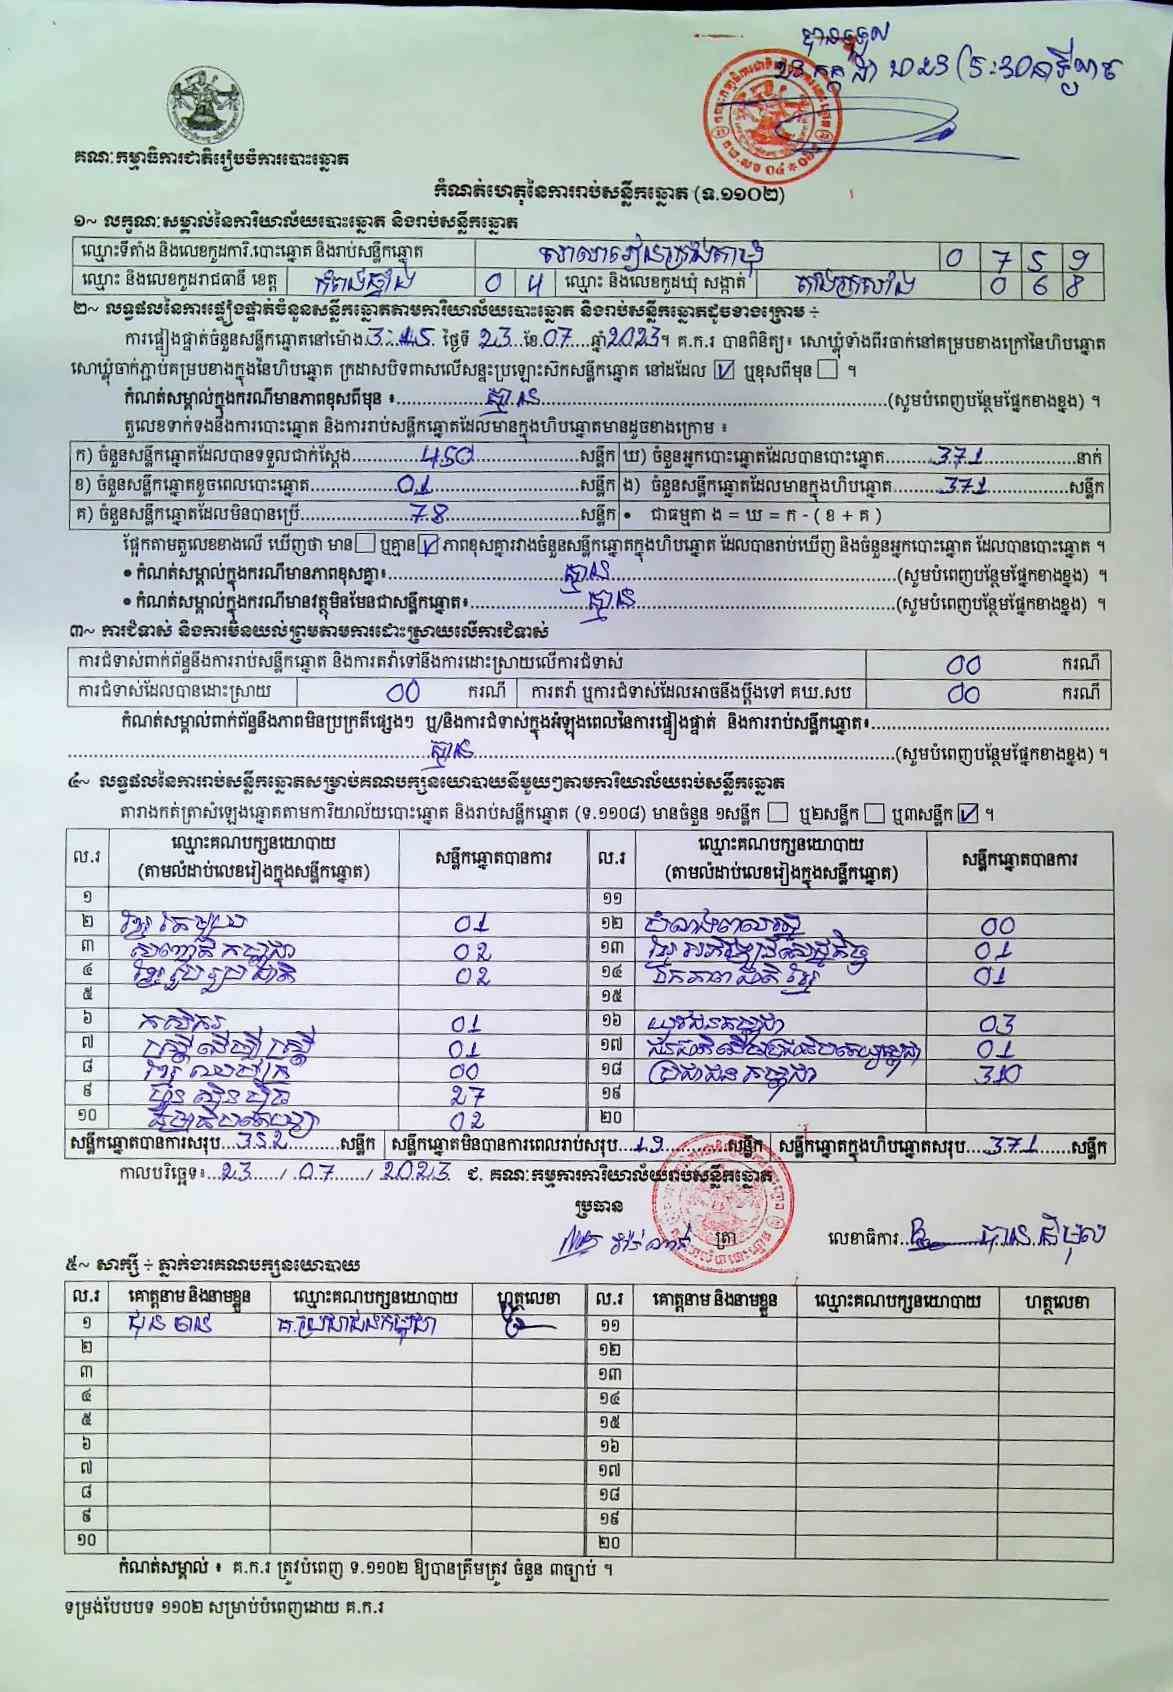 បានទទួល
23 កក្កដា 2023 (5:30នាទីល្ងាច
គណៈកម្មាធិការជាតិរៀបចំការបោះឆ្នោត
កំណត់ហេតុនៃការរាប់សន្លឹកឆ្នោត (ទ.១១០២)
១~ លក្ខណៈសម្គាល់នៃការិយាល័យបោះឆ្នោត និងរាប់សន្លឹកឆ្នោត
ឈ្មោះទីតាំង និងលេខកូដការិ.បោះឆ្នោត និងរាប់សន្លឹកឆ្នោត 0 7 5 9
ឈ្មោះ និងលេខកូដរាជធានី ខេត្ត កំពង់ឆ្នាំង 0 4 ឈ្មោះ និងលេខកូដឃុំ សង្កាត់ 0 6 8
២~ លទ្ធផលនៃការផ្ទៀងផ្ទាត់ចំនួនសន្លឹកឆ្នោតតាមការិយាល័យបោះឆ្នោត និងរាប់សន្លឹកឆ្នោតដូចខាងក្រោម ÷
ការផ្ទៀងផ្ទាត់ចំនួនសន្លឹកឆ្នោតនៅម៉ោង 3:15 ថ្ងៃទី 23 ខែ 07 ឆ្នាំ 2023។ គ.ក.រ បានពិនិត្យ៖ សោឃ្លុំទាំងពីរចាក់នៅគម្របខាងក្រៅនៃហិបឆ្នោត
សោឃ្លុំចាក់ភ្ជាប់គម្របខាងក្នុងនៃហិបឆ្នោត ក្រដាសបិទពាសលើសន្ទះប្រឡោះស៊កសន្លឹកឆ្នោត នៅដដែល ☑ ឬខុសពីមុន ☐ ។
កំណត់សម្គាល់ក្នុងករណីមានភាពខុសពីមុន ៖ គ្មាន (សូមបំពេញបន្ថែមផ្នែកខាងខ្នង) ។
តួលេខទាក់ទងនឹងការបោះឆ្នោត និងការរាប់សន្លឹកឆ្នោតដែលមានក្នុងហិបឆ្នោតមានដូចខាងក្រោម ៖
ក) ចំនួនសន្លឹកឆ្នោតដែលបានទទួលជាក់ស្តែង 450 សន្លឹក ឃ) ចំនួនអ្នកបោះឆ្នោតដែលបានបោះឆ្នោត 371 នាក់
ខ) ចំនួនសន្លឹកឆ្នោតខូចពេលបោះឆ្នោត 01 សន្លឹក ង) ចំនួនសន្លឹកឆ្នោតដែលមានក្នុងហិបឆ្នោត 371 សន្លឹក
គ) ចំនួនសន្លឹកឆ្នោតដែលមិនបានប្រើ 78 សន្លឹក • ជាធម្មតា ង = ឃ = ក - ( ខ + គ )
ផ្អែកតាមតួលេខខាងលើ ឃើញថា មាន ☐ ឬគ្មាន ☑ ភាពខុសគ្នារវាងចំនួនសន្លឹកឆ្នោតក្នុងហិបឆ្នោត ដែលបានរាប់ឃើញ និងចំនួនអ្នកបោះឆ្នោត ដែលបានបោះឆ្នោត ។
• កំណត់សម្គាល់ក្នុងករណីមានភាពខុសគ្នា៖ គ្មាន (សូមបំពេញបន្ថែមផ្នែកខាងខ្នង) ។
• កំណត់សម្គាល់ក្នុងករណីមានវត្ថុមិនមែនជាសន្លឹកឆ្នោត៖ គ្មាន (សូមបំពេញបន្ថែមផ្នែកខាងខ្នង) ។
៣~ ការជំទាស់ និងការមិនយល់ព្រមតាមការដោះស្រាយលើការជំទាស់
ការជំទាស់ពាក់ព័ន្ធនឹងការរាប់សន្លឹកឆ្នោត និងការតវ៉ាទៅនឹងការដោះស្រាយលើការជំទាស់ 00 ករណី
ការជំទាស់ដែលបានដោះស្រាយ 00 ករណី ការតវ៉ា ឬការជំទាស់ដែលអាចនឹងប្តឹងទៅ គឃ.សប 00 ករណី
កំណត់សម្គាល់ពាក់ព័ន្ធនឹងភាពមិនប្រក្រតីផ្សេងៗ ឬ/និងការជំទាស់ក្នុងអំឡុងពេលនៃការផ្ទៀងផ្ទាត់ និងការរាប់សន្លឹកឆ្នោត៖
គ្មាន (សូមបំពេញបន្ថែមផ្នែកខាងខ្នង) ។
៤~ លទ្ធផលនៃការរាប់សន្លឹកឆ្នោតសម្រាប់គណបក្សនយោបាយនីមួយៗតាមការិយាល័យរាប់សន្លឹកឆ្នោត
តារាងកត់ត្រាសំឡេងឆ្នោតតាមការិយាល័យបោះឆ្នោត និងរាប់សន្លឹកឆ្នោត (ទ.១១០៨) មានចំនួន ១សន្លឹក ☐ ឬ២សន្លឹក ☐ ឬ៣សន្លឹក ☑ ។
ល.រ ឈ្មោះគណបក្សនយោបាយ (តាមលំដាប់លេខរៀងក្នុងសន្លឹកឆ្នោត) សន្លឹកឆ្នោតបានការ ល.រ ឈ្មោះគណបក្សនយោបាយ (តាមលំដាប់លេខរៀងក្នុងសន្លឹកឆ្នោត) សន្លឹកឆ្នោតបានការ
១ ១១
២ 01 ១២ 00
៣ 02 ១៣ ខ្មែរអភិវឌ្ឍន៍សេដ្ឋកិច្ច 01
៤ ខ្មែររួបរួមជាតិ 02 ១៤ ឯកភាពជាតិខ្មែរ 01
៥ ១៥
៦ កសិករ 01 ១៦ យុវជនកម្ពុជា 03
៧ ស្រ្តីដើម្បីស្រ្តី 01 ១៧ ជនជាតិដើមប្រជាធិបតេយ្យកម្ពុជា 01
៨ 00 ១៨ ប្រជាជនកម្ពុជា 310
៩ ហ៊្វុនស៊ិនប៉ិច 27 ១៩
១០ 02 ២០
សន្លឹកឆ្នោតបានការសរុប 352 សន្លឹក សន្លឹកឆ្នោតមិនបានការពេលរាប់សរុប 19 សន្លឹក សន្លឹកឆ្នោតក្នុងហិបឆ្នោតសរុប 371 សន្លឹក
កាលបរិច្ឆេទ៖ 23 / 07 / 2023 ជ. គណៈកម្មការការិយាល័យរាប់សន្លឹកឆ្នោត
ប្រធាន
ត្រា លេខាធិការ
៥~ សាក្សី ÷ ភ្នាក់ងារគណបក្សនយោបាយ
ល.រ គោត្តនាម និងនាមខ្លួន ឈ្មោះគណបក្សនយោបាយ ហត្ថលេខា ល.រ គោត្តនាម និងនាមខ្លួន ឈ្មោះគណបក្សនយោបាយ ហត្ថលេខា
១ គ.ប្រជាជនកម្ពុជា ១១
២ ១២
៣ ១៣
៤ ១៤
៥ ១៥
៦ ១៦
៧ ១៧
៨ ១៨
៩ ១៩
១០ ២០
កំណត់សម្គាល់ ៖ គ.ក.រ ត្រូវបំពេញ ទ.១១០២ ឱ្យបានត្រឹមត្រូវ ចំនួន ៣ច្បាប់ ។
ទម្រង់បែបបទ ១១០២ សម្រាប់បំពេញដោយ គ.ក.រ